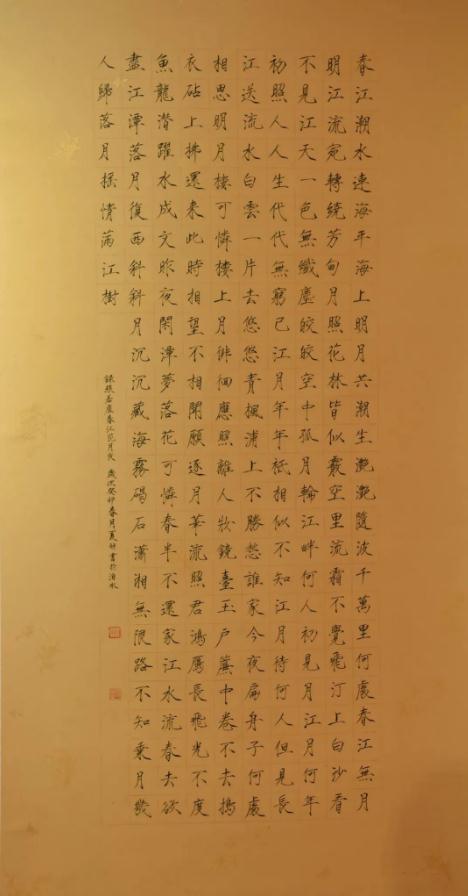 春江潮水連海平海上明月共潮生灧灧隨波千萬里何處春江無月
明江流宛轉繞芳甸月照花林皆似霰空里流霜不覺飛汀上白沙看
不見江天一色無纖塵皎皎空中孤月輪江畔何人初見月江月何年
初照人人生代代無窮已江月年年祗相似不知江月待何人但見長
江送流水白雲一片去悠悠青楓浦上不勝愁誰家今夜扁舟子何處
相思明月樓可憐樓上月徘徊應照離人妝鏡臺玉戶簾中卷不去搗
衣砧上拂還來此時相望不相聞願逐月華流照君鴻鴈長飛光不度
魚龍潛躍水成文昨夜閑潭夢落花可憐春半不還家江水流春去欲
盡江潭落月復西斜斜月沉沉藏海霧碣石瀟湘無限路不知乘月幾
人歸落月搖情滿江樹
錄張若虛春江花月夜 歲次癸卯春月夏書於